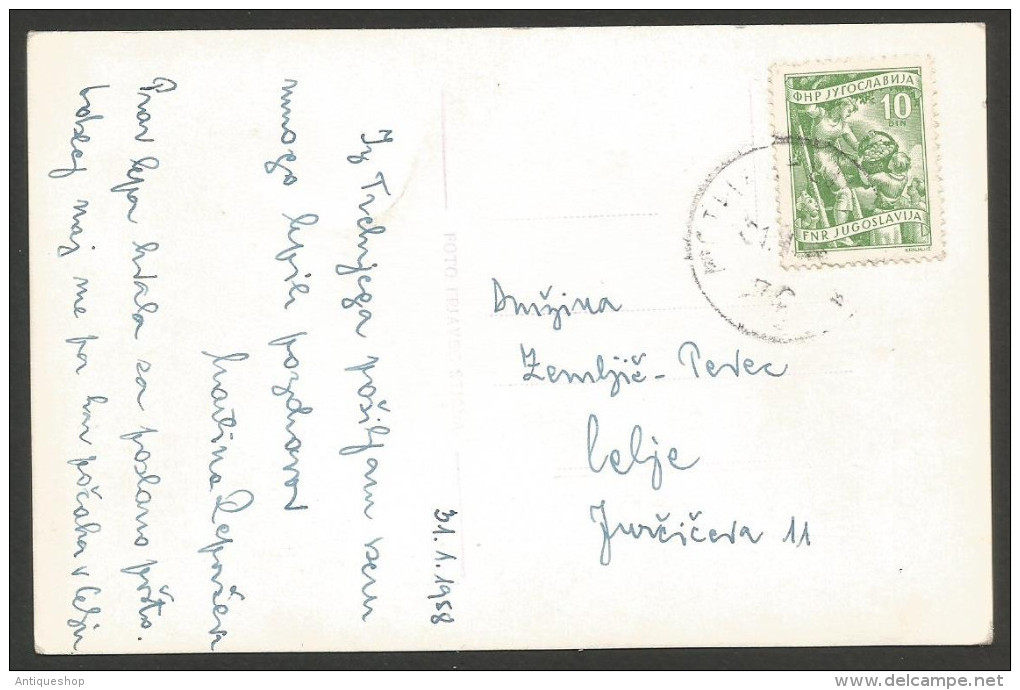 31. 1. 1958
Iz Trebnjega pošiljam vsem
mnogo lepih pozdravov
Prav lepa hvala za poslano pošto.
naj me pa kar počaka v Celju
FOTO
ФНР ЈУГОСЛАВИЈА
10
DIN
FNR JUGOSLAVIJA
Družina
Zemljič - Pevec
Celje
Jurčičeva 11
Antiqueshop
delcampe.net